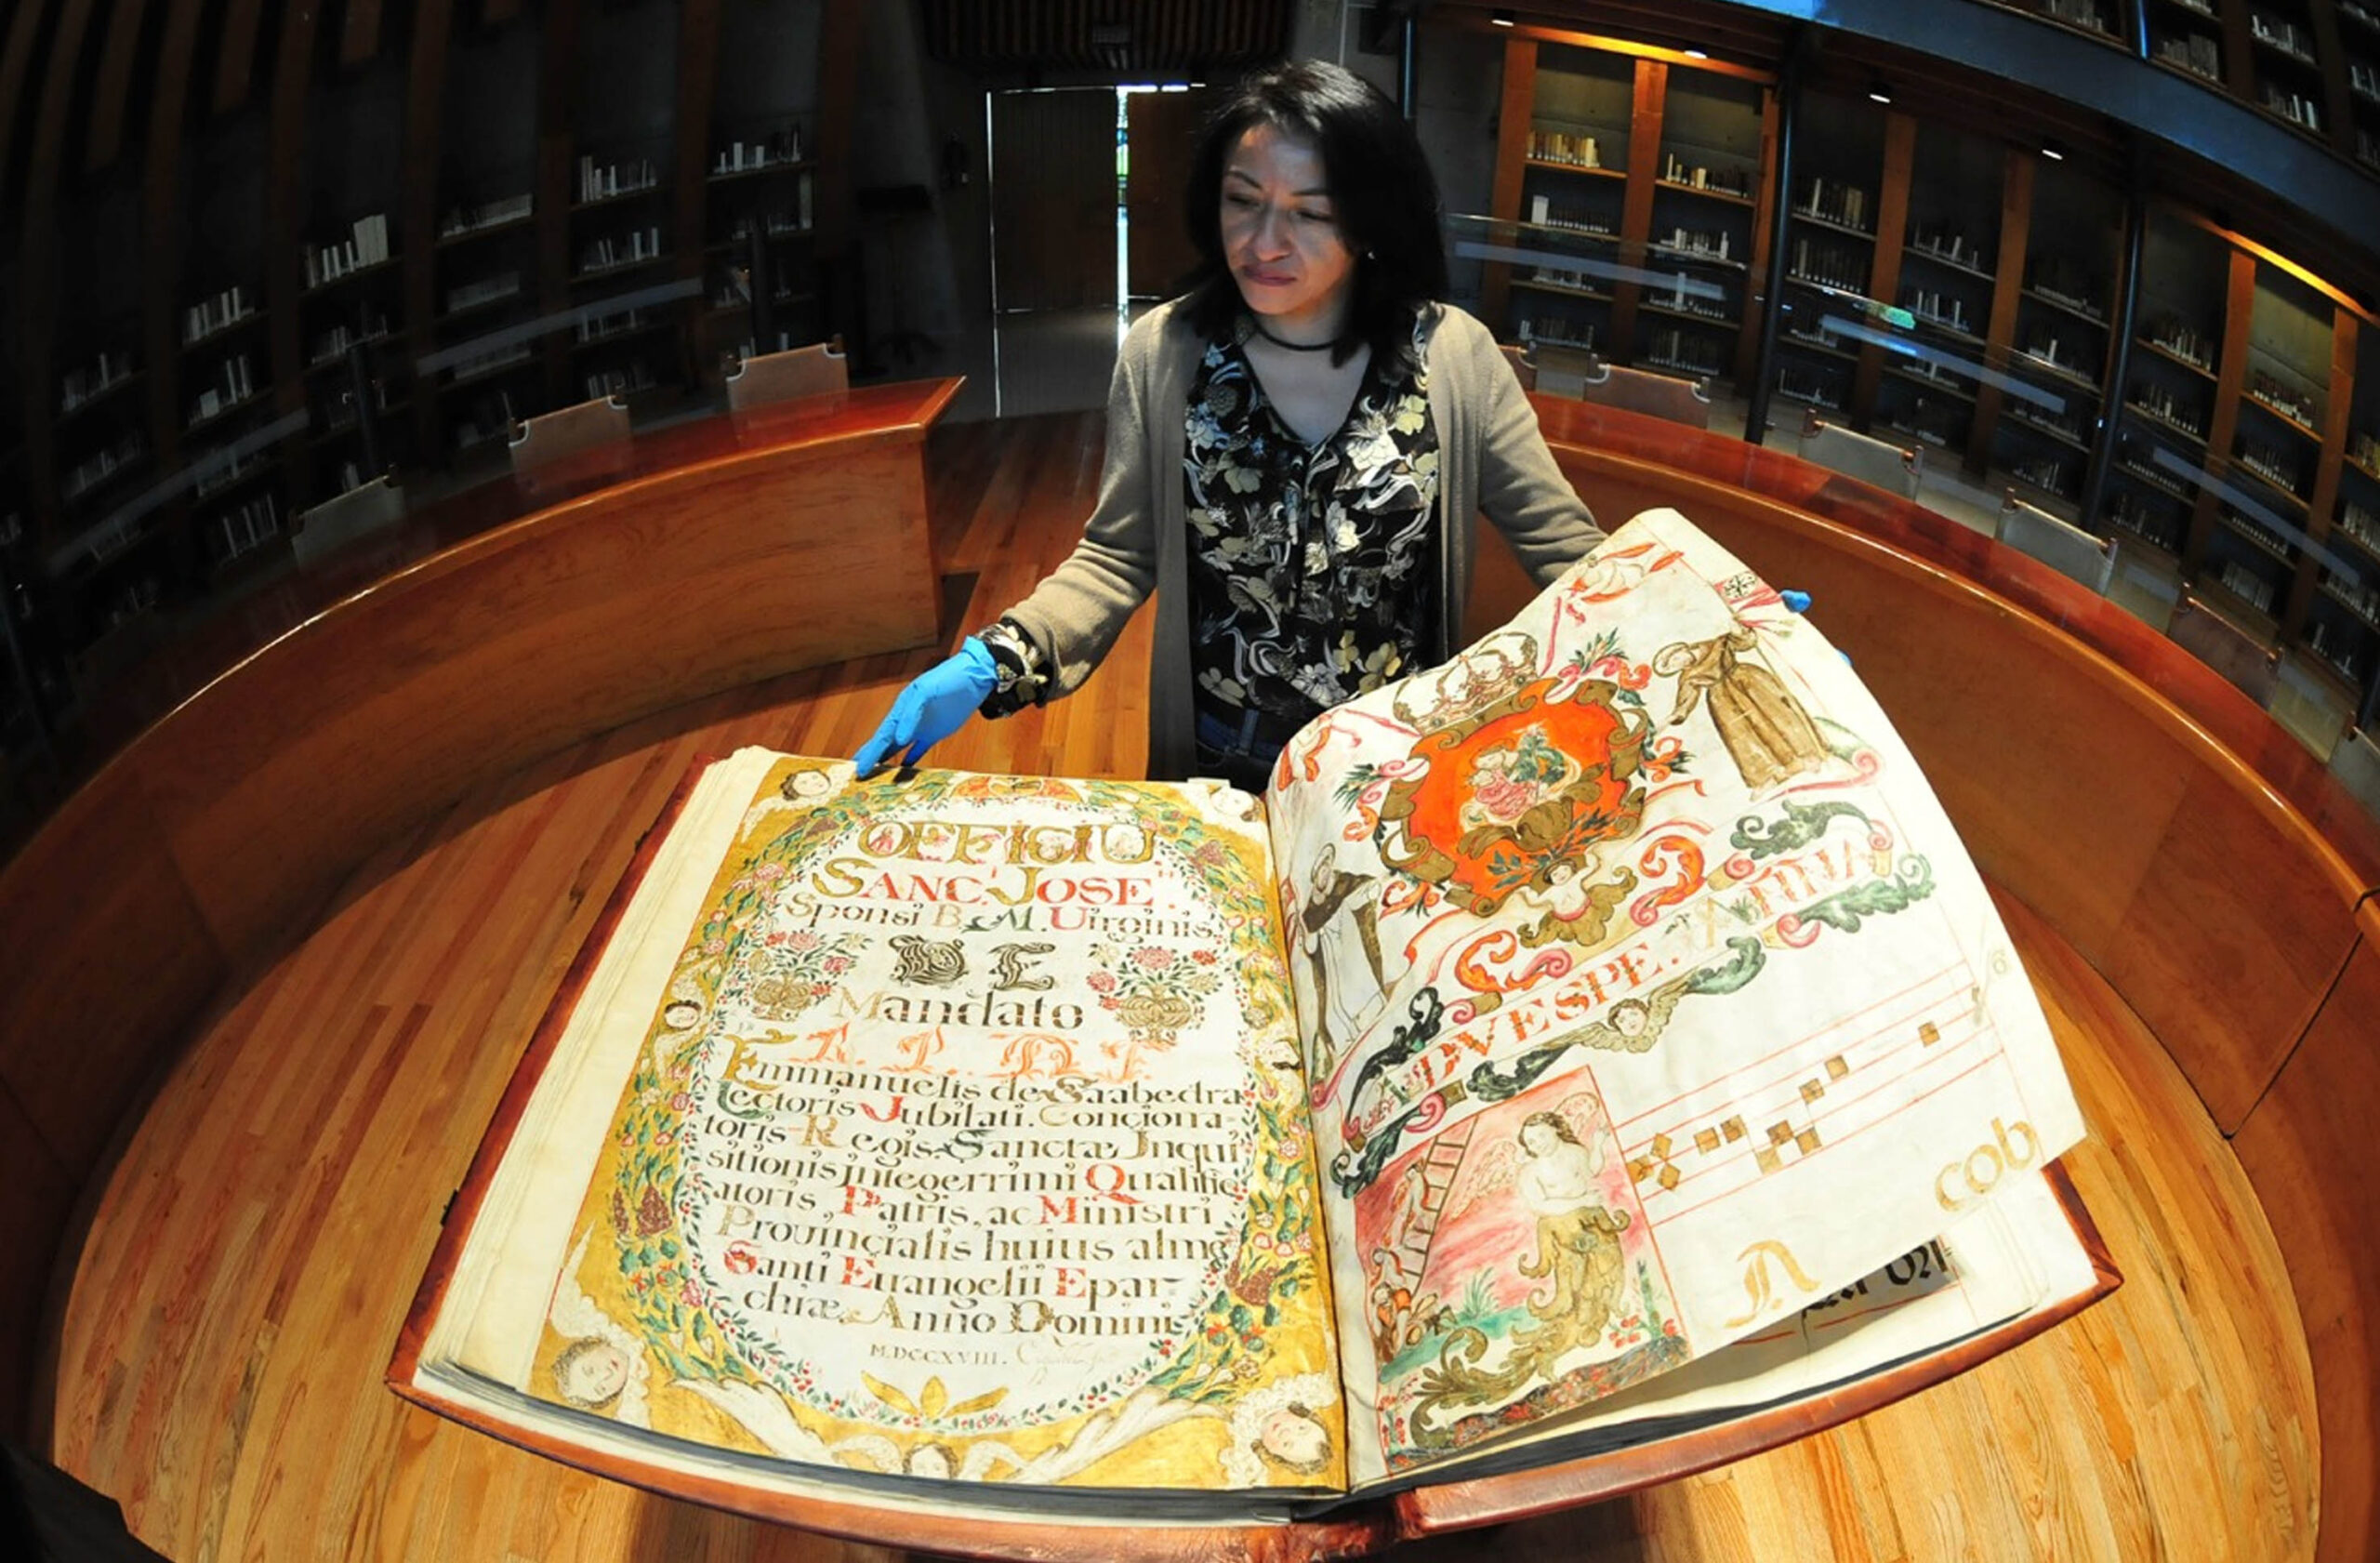 OFFICIU
SANC. JOSE.
Sponsi B. M. Uirginis.
DE
Mandato
Emmanuelis de Saabedra
Lectoris Jubilati. Conçiona-
toris Regis. Sanctæ Jnqui
sitionis jntegerrimi Qualific
atoris, Patris, ac Ministri
Prouinçialis huius almę
Santi Euangelii Epar-
chiæ. Anno Domini
M.DCCXVIII.
AD VESPE. AÑNA
6
cob